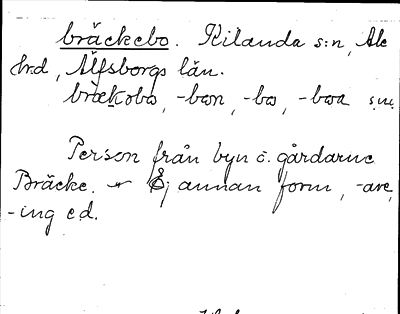 bräckebo. Kilanda s:n, Ale
hrd, Älfsborgs län.
brækobo, -bon, -bo, -boa s.m.
Person från byn o. gårdarne
Bräcke. Ej annan form, -are,
-ing e d.